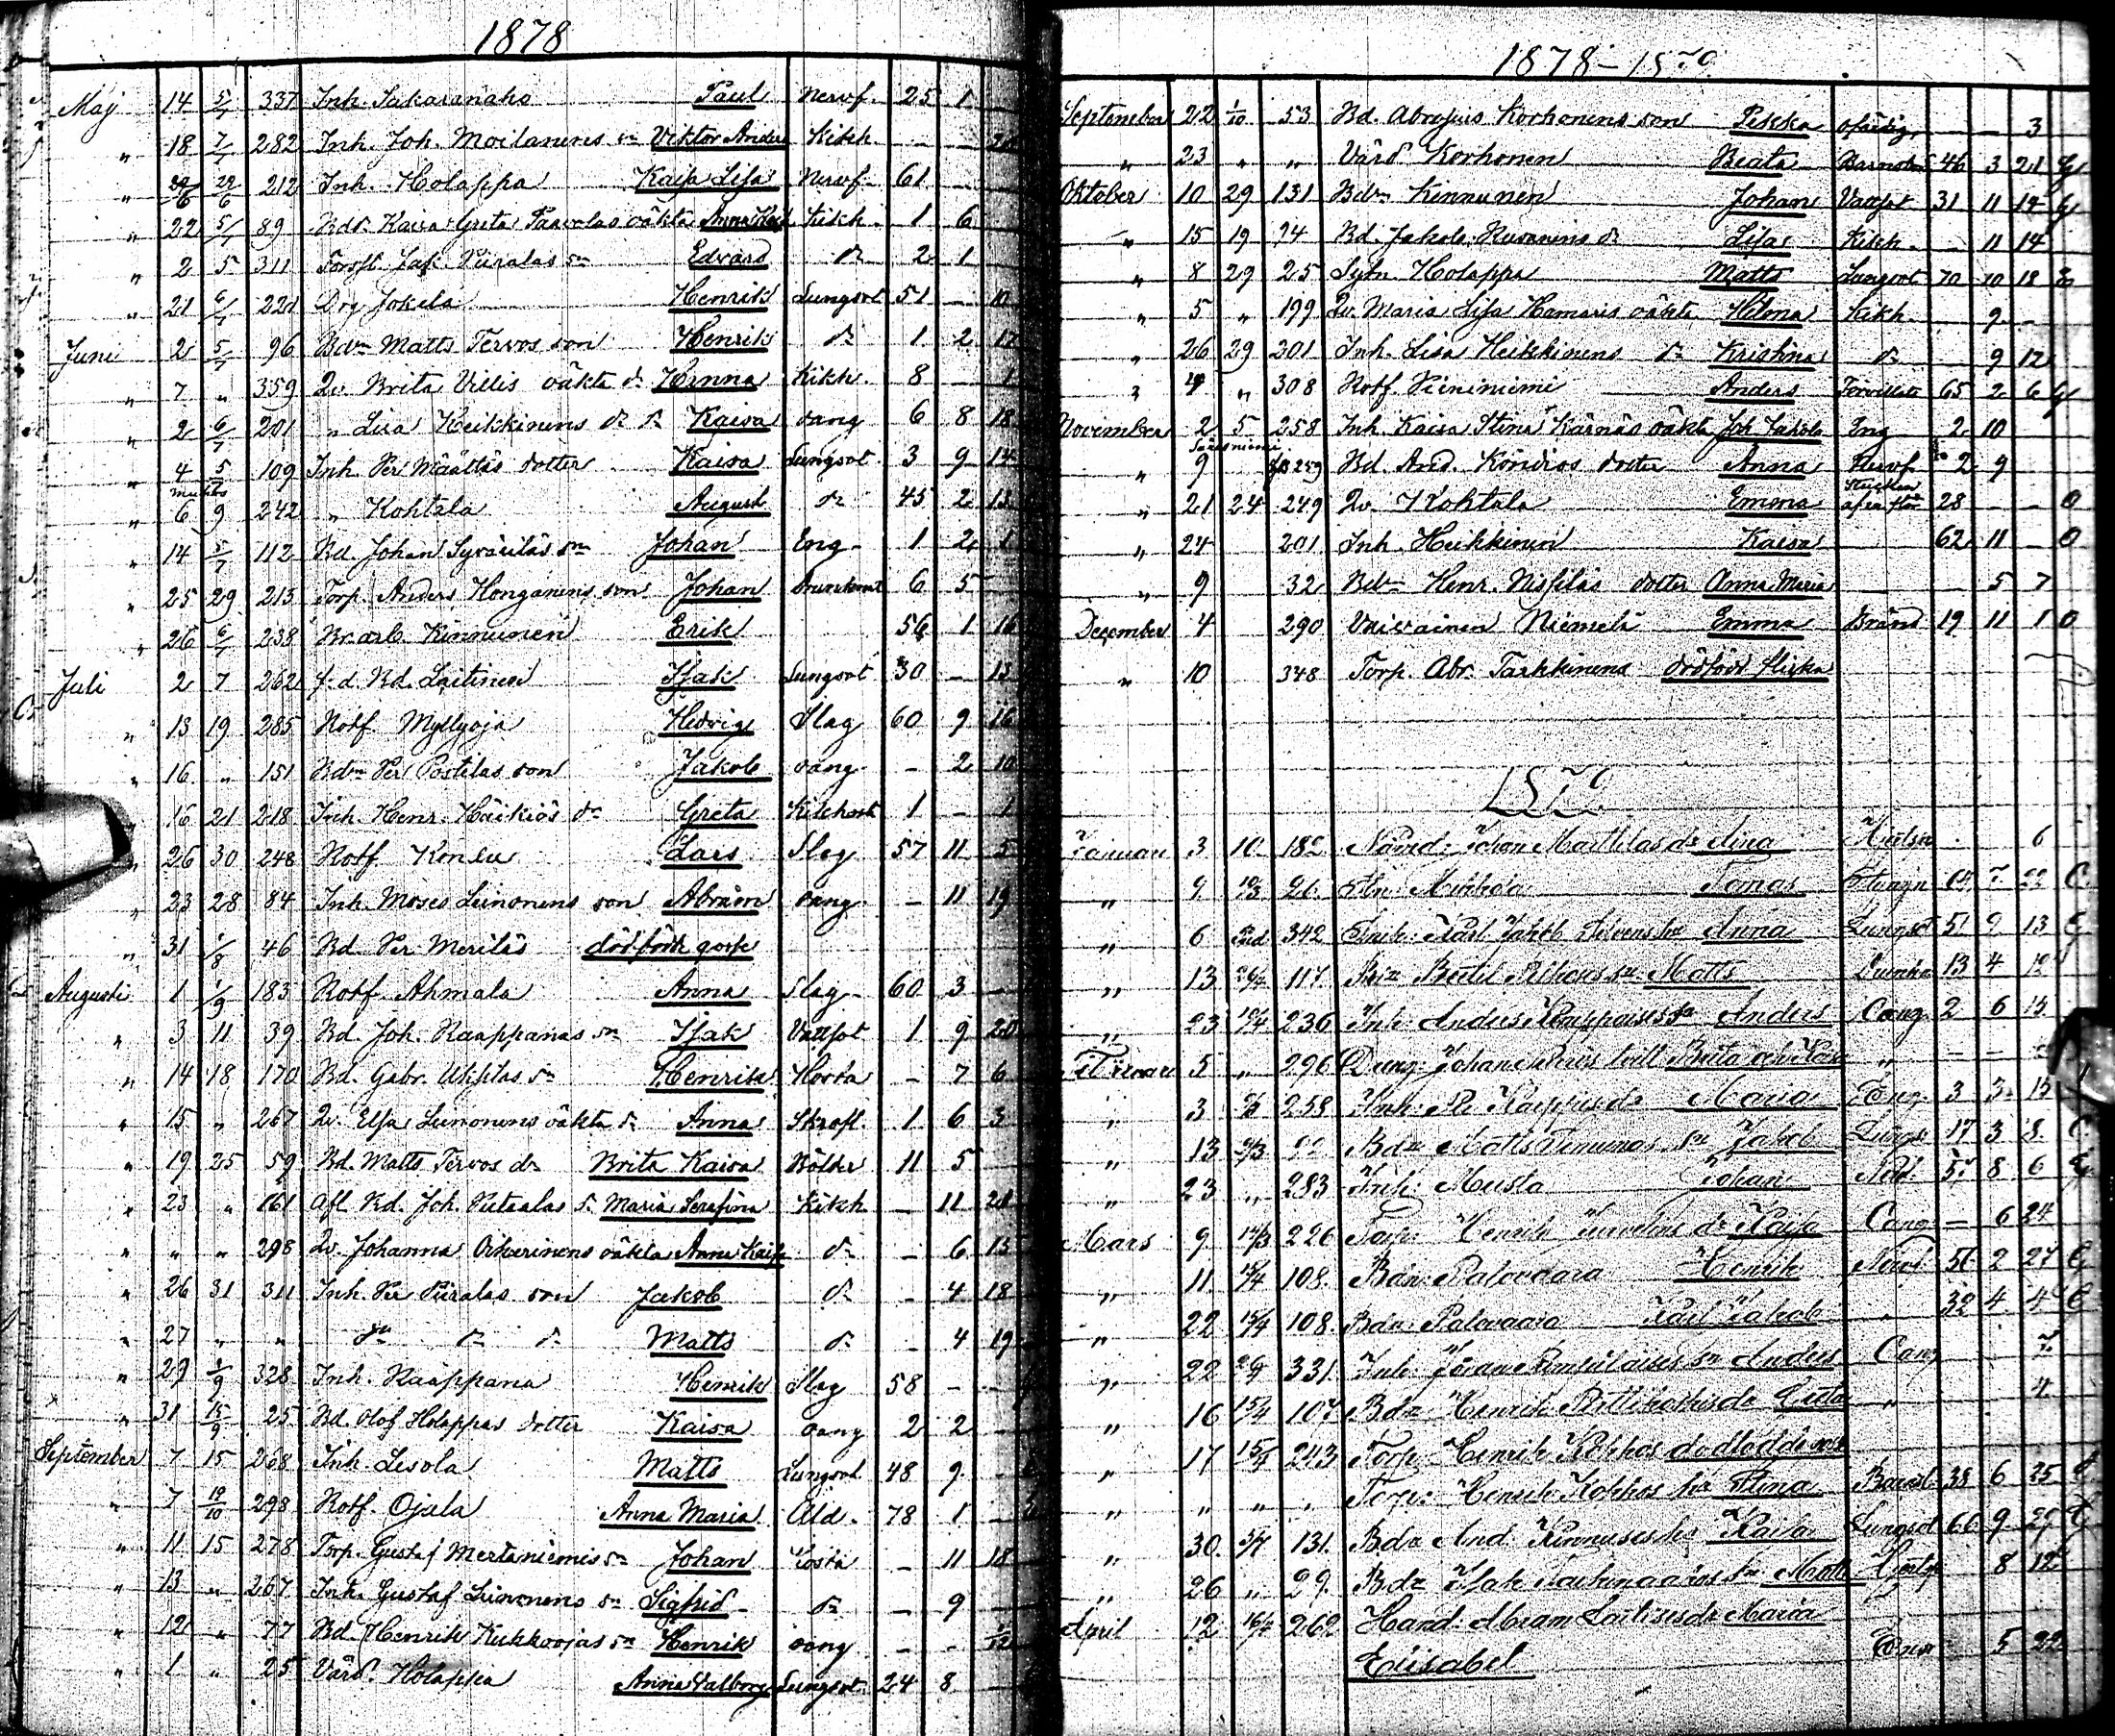 1878
Maj 14 5/7 337 Inh. Sakaranaho Paul Nervf. 25 1
" 18 7/7 282 Inh. Joh. Moilanens sn Viktor Ander Kikh. - -
" 29/6 212 Inh. Holappa Kaisa Lisa Nervf. 61 - -
" 22 5/7 89 Bds Kaisa Greta Paavolas oäkta Anna Kikh. 1 6
" 2 5 311 Torpf. Piiralas sn Edvard dn 2 1
" 21 6/7 221 Drg Jokela Henrik Lungsot 51 - 10
Juni 2 5/7 96 Bdn Matts Tervos son Henrik dn 1 2 17
" 7 " 359 Qv. Brita Villis oäkta dr Hanna Kikh. 8 - 1
" 2 6/7 201 " Lisa Heikkinens dr Kaisa oang 6 8 18
" 4 5/7 109 Inh Per Määttäs dotter Kaisa Lungsot 3 9 14
" 6 9 242 " Kohtala August dn 45 2 13
" 14 5/7 112 Bd. Johan Syväriläs sn Johan Eng. 1 2 1
" 25 29 213 Torp. Anders Honganens son Johan 6 5
" 26 6/7 238 Br.arb. Kinnunen Erik 56 1 16
Juli 2 7 262 f.d. Bd. Laitinen Isak Lungsot 30 - 13
" 13 19 285 Rotf. Myllyoja Hedvig Slag 60 9 16
" 16 " 151 Bdn Per Postilas son Jakob oang - 2 10
" 16 21 218 Inh. Henr. Häikiös dr Greta Kikhost 1 - 1
" 26 30 248 Rotf. Lars Slag 57 11 5
" 23 28 84 Inh. Moses Leinonens son Abram oang. - 11 19
" 31 1/8 46 Bd. Per Meriläs dödfödt gosse
Augusti 1 1/9 183 Rotf. Ahmala Anna Slag 60 3 -
" 3 11 39 Bd. Joh. Kaappanas sn Isak Vattsot 1 9 20
" 14 18 170 Bd. Gabr. sn Henrik Hosta - 7 6
" 15 " 267 Qv. Elsa Leinonens oäkta dr Anna Skrofl. 1 6 3
" 19 25 59 Bd. Matts Tervos dr Brita Kaisa Bölder 11 5
" 23 " 161 Afl. Bd. Joh. dr Maria Serafina Kikh - 11 21
" " " 298 Qv. Johanna oäkta Anna Kaisa dn - 6 13
" 26 31 311 Inh. Per Piiralas son Jakob dn - 4 18
" 27 " " dn dn dn Matts dn - 4 19
" 29 1/9 328 Inh. Kaappana Henrik Slag 58 - -
" 31 15/9 25 Bd. Olof Holappas dotter Kaisa oang 2 2
September 7 15 268 Inh. Lesola Matts Lungsot 48 9 -
" 7 19/10 298 Rotf. Ojala Anna Maria Åld. 78 1 -
" 11 15 278 Torp. Gustaf Mertaniemis sn Johan Hosta - 11 18
" 13 " 267 Inh. Gustaf Leinonens sn Sigfrid dn - 9
" 12 " 77 Bd. Henrik Kukkoojas sn Henrik oang - - 1/12
" 1 " 25 Värd. Holappa Anna Valborg Lungsot 24 8
1878-1879
September 22 1/10 53 Bd. Korhonens son Pekka - - 3
" 23 " " Värd. Korhonen Beata Barnsb 46 3 21
Oktober 10 29 131 Bdn Kinnunen Johan Vattsot 31 11 19
" 15 19 74 Bd. Jakob dr Lisa Kikh. - 11 14
" 8 29 25 Sytn. Holappa Matts Lungsot 70 10 18
" 5 " 199 Qv. Maria Lisa Hamaris oäkta Helena Kikh. 9 -
" 26 29 201 Inh. Lisa Heikkinens dr Kristina dn 9 12
" 4 " 308 Rotf. Pieniniemi Anders 65 2 6
November 2 5 258 Inh. Kaisa Stina Kärnäs oäkta Joh. Jakob Eng 2 10
" 9 259 Bd. And. dotter Anna Nervf. 2 9
" 21 24 249 Qv. Kohtala Emma 28 - - 0
" 24 201 Inh. Heikkinen Kaisa 62 11 - 0
" 9 32 Bdn Henr. dotter Anna Maria 5 7
December 4 290 Niemelä Emma Bränd 19 11 1 0
" 10 348 Torp. Abr. Tarkkinens dödfödd flicka
1879
Januari 3 10 Johan Marttilas dr Lina 6
" 9 Tomas 7 22
" 6 342 Inh. Anna Lungsot 51 9 13
" 13 117 Matts 13 4
" 23 236 Inh. Anders sn Anders Oang 2 6 15
Februari 5 " 296 Johan Brita och
" 3 258 Inh. Maria Eng. 3 3 15
" 13 Bdn Matts sn Jakob Lungs 17 3 8
" 23 " 283 Inh. Musta Johan 8 6
Mars 9 14/3 226 Torp. Henrik dr Kajsa Oang - 6 24
" 11 15/4 108 Bdn Palovaara Henrik Nervf 56 2 27
" 22 15/4 108 Bdn Palovaara Karl Jakob " 32 4 4
" 22 331 Inh. Göran sn Anders Oang
" 16 15/4 107 Bdn Henrik dr Greta " 4
" 17 15/4 243 Torp. Henrik Kokkos dödfödd
" " " " Torp. Henrik Kokkos hu Stina Barnsb 38 6 25
" 30 131 Bdn And. Kinnunens hu Kaisa Lungsot 66 9 29
" 26 " 29 Bdn Isak sn Matts 8 12
April 12 16/4 262 Hand. Abram Laitises dr Maria
Elisabet 5 22